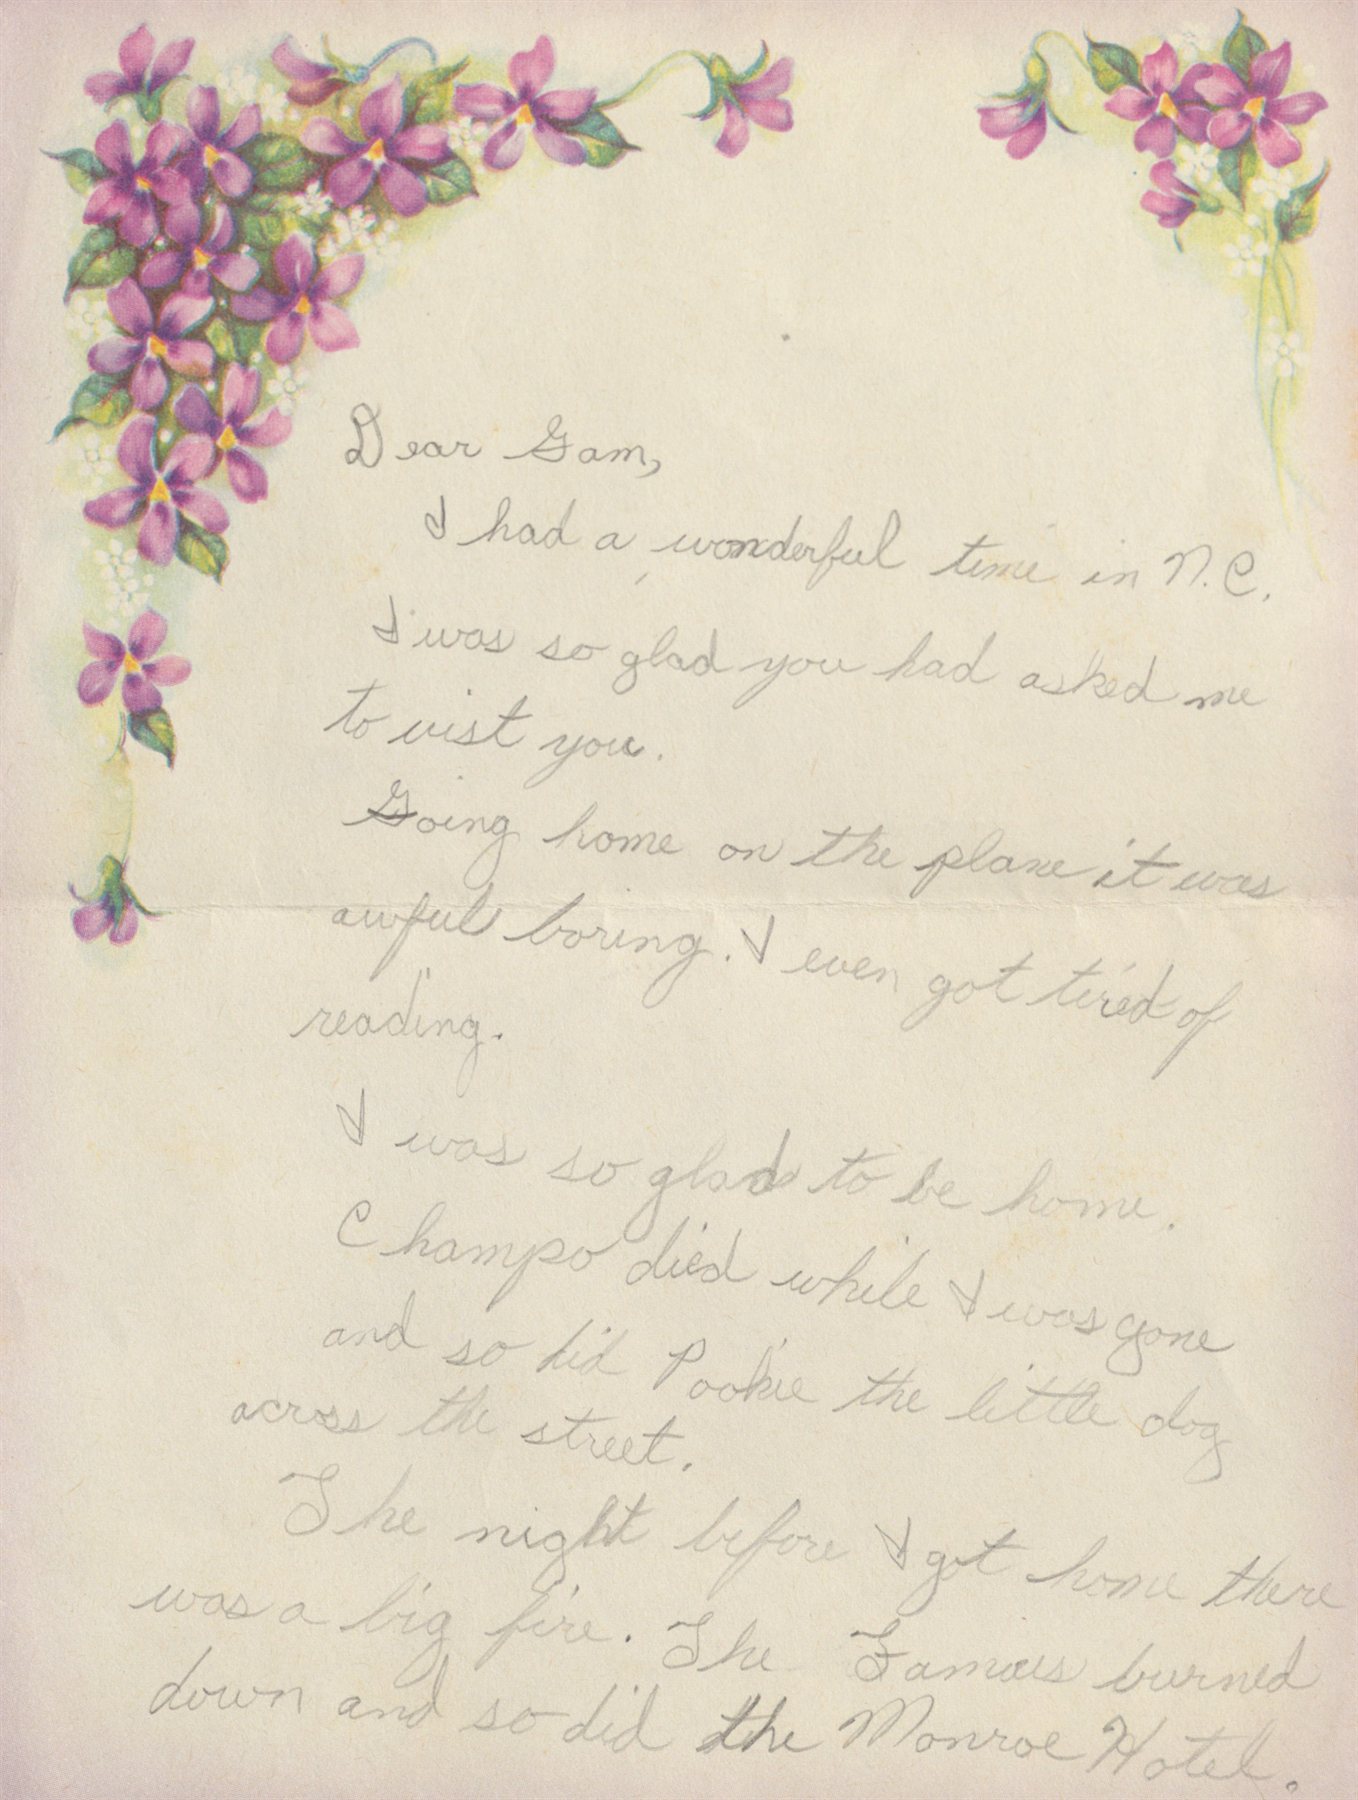 Dear Gam,
I had a wonderful time in N.C.
I was so glad you had asked me
to vist you.
Going home on the plane it was
awful boring. I even got tired of
reading.
I was so glad to be home.
Champo died while I was gone
and so did Pookie the little dog
across the street.
The night before I got home there
was a big fire. The Famous burned
down and so did the Monroe Hotel.